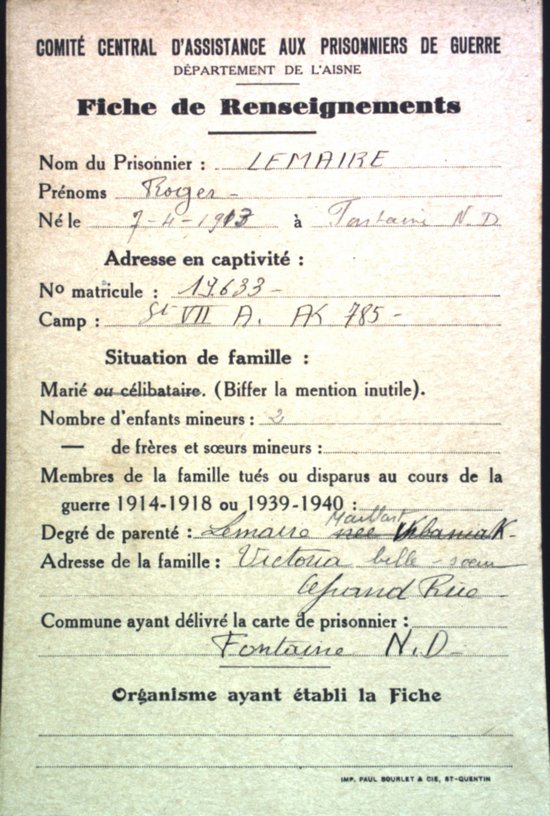 COMITÉ CENTRAL D'ASSISTANCE AUX PRISONNIERS DE GUERRE
DÉPARTEMENT DE L'AISNE
Fiche de Renseignements
Nom du Prisonnier : LEMAIRE
Prénoms Roger -
Né le 7-4-1913 à Fontaine N.D
Adresse en captivité :
No matricule : 17.633 -
Camp : St VII A. AK 785 -
Situation de famille :
Marié ou célibataire. (Biffer la mention inutile).
Nombre d'enfants mineurs : 2
— de frères et sœurs mineurs :
Membres de la famille tués ou disparus au cours de la
guerre 1914-1918 ou 1939-1940 :
Degré de parenté : Lemaire née Urbaniak -
Adresse de la famille : Victoria belle-sœur
Grand Rue
Commune ayant délivré la carte de prisonnier :
Fontaine N.D -
Organisme ayant établi la Fiche
IMP. PAUL BOURLET & CIE, ST-QUENTIN